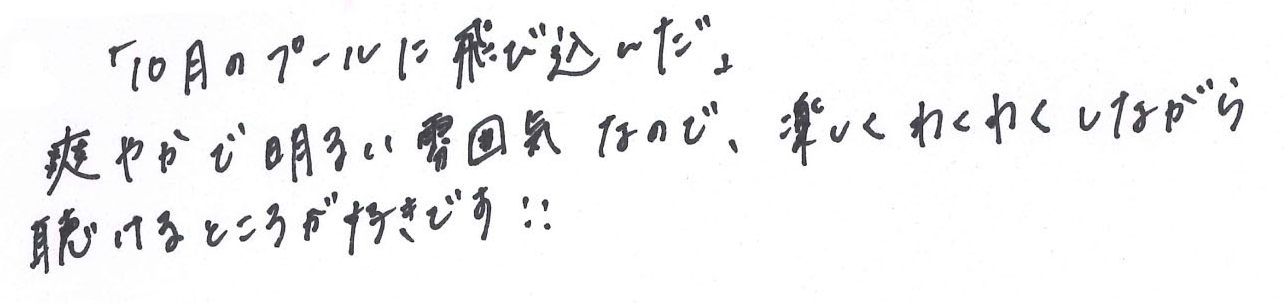 「10月のプールに飛び込んだ」
爽やかで明るい雰囲気なので、楽しくわくわくしながら
聴けるところが好きです!!